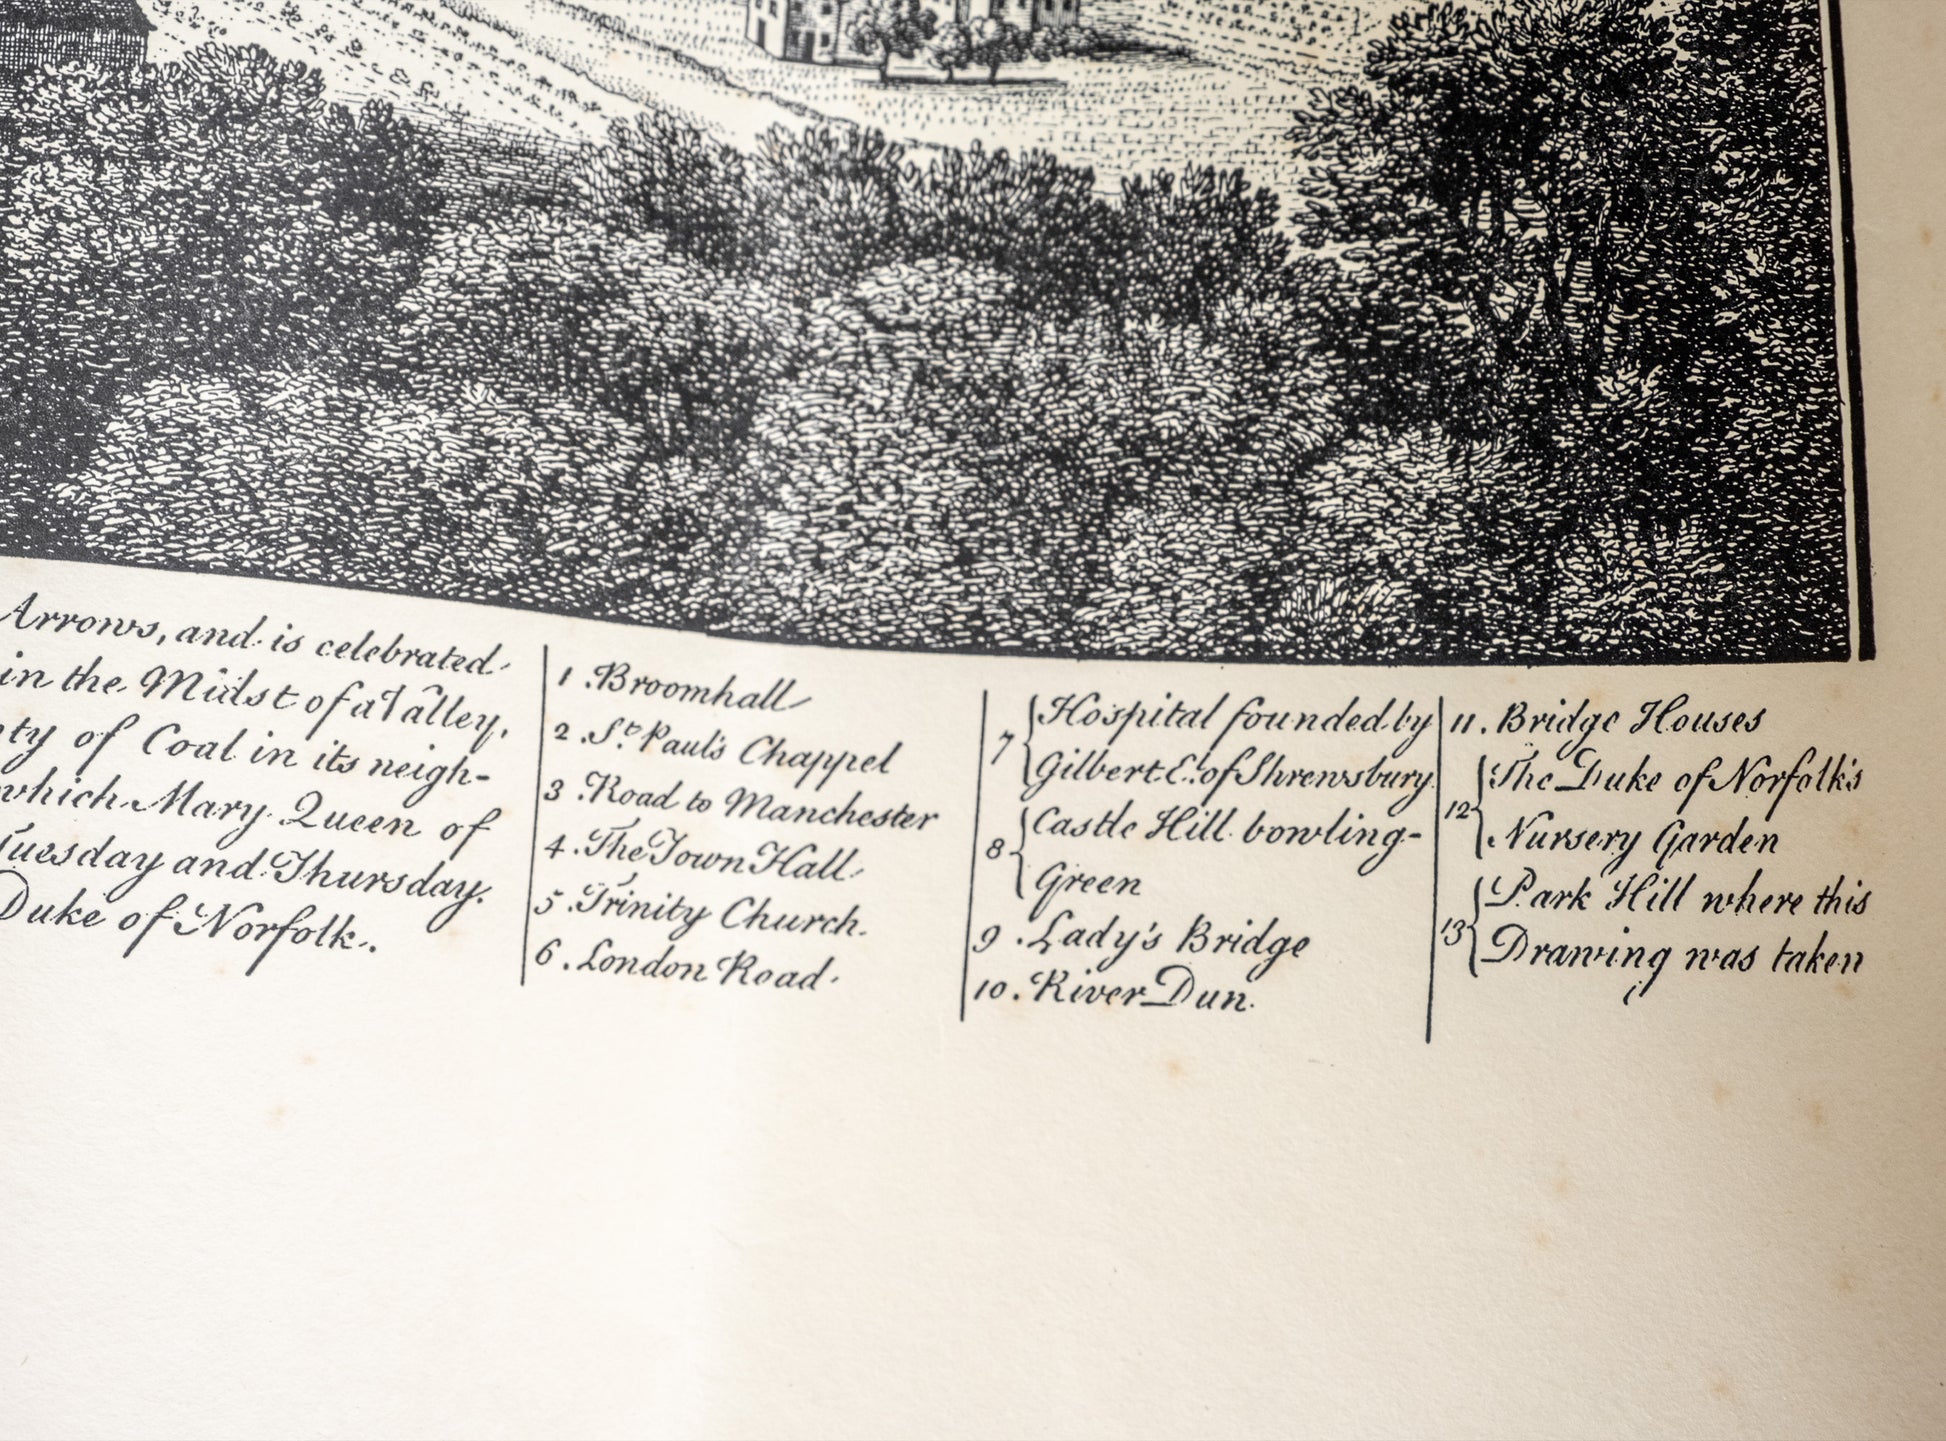 Arrows, and is celebrated
in the Midst of a Valley,
ty of Coal in its neigh-
which Mary Queen of
Tuesday and Thursday.
Duke of Norfolk.
1. Broomhall
2. St. Paul's Chappel
3. Road to Manchester
4. The Town Hall
5. Trinity Church.
6. London Road.
7 { Hospital founded by
Gilbert E. of Shrewsbury
8 { Castle Hill bowling-
Green
9. Lady's Bridge
10. River Dun.
11. Bridge Houses
12 { The Duke of Norfolk's
Nursery Garden
13 { Park Hill where this
Drawing was taken